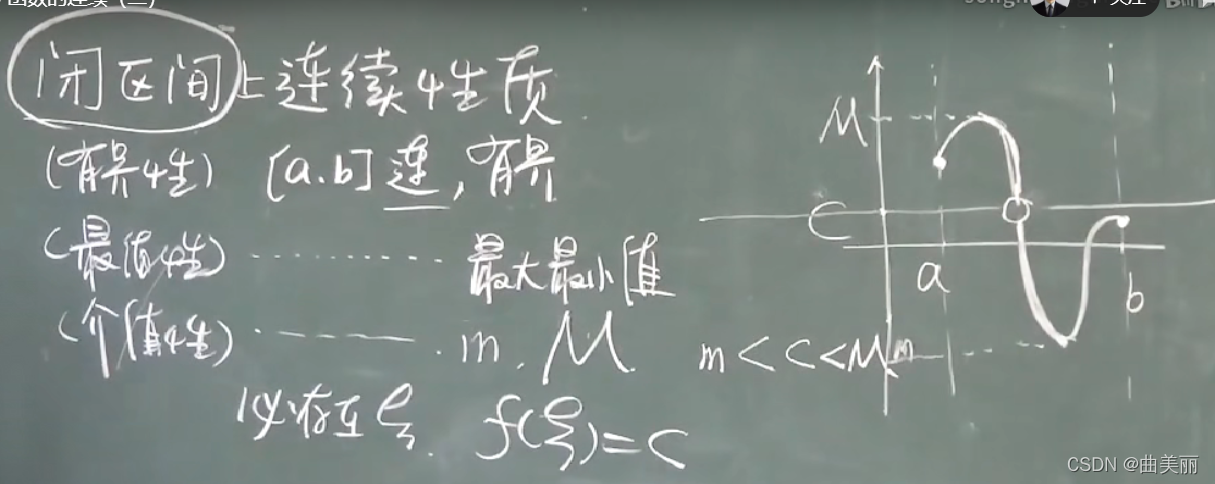 闭区间上连续性质
(有界性) [a.b]连,有界
(最值性) ............ 最大最小值
(介值性) ———. m. M
m<C<M
必存在ξ. f(ξ)=C
M
C
a
b
m
CSDN @曲美丽